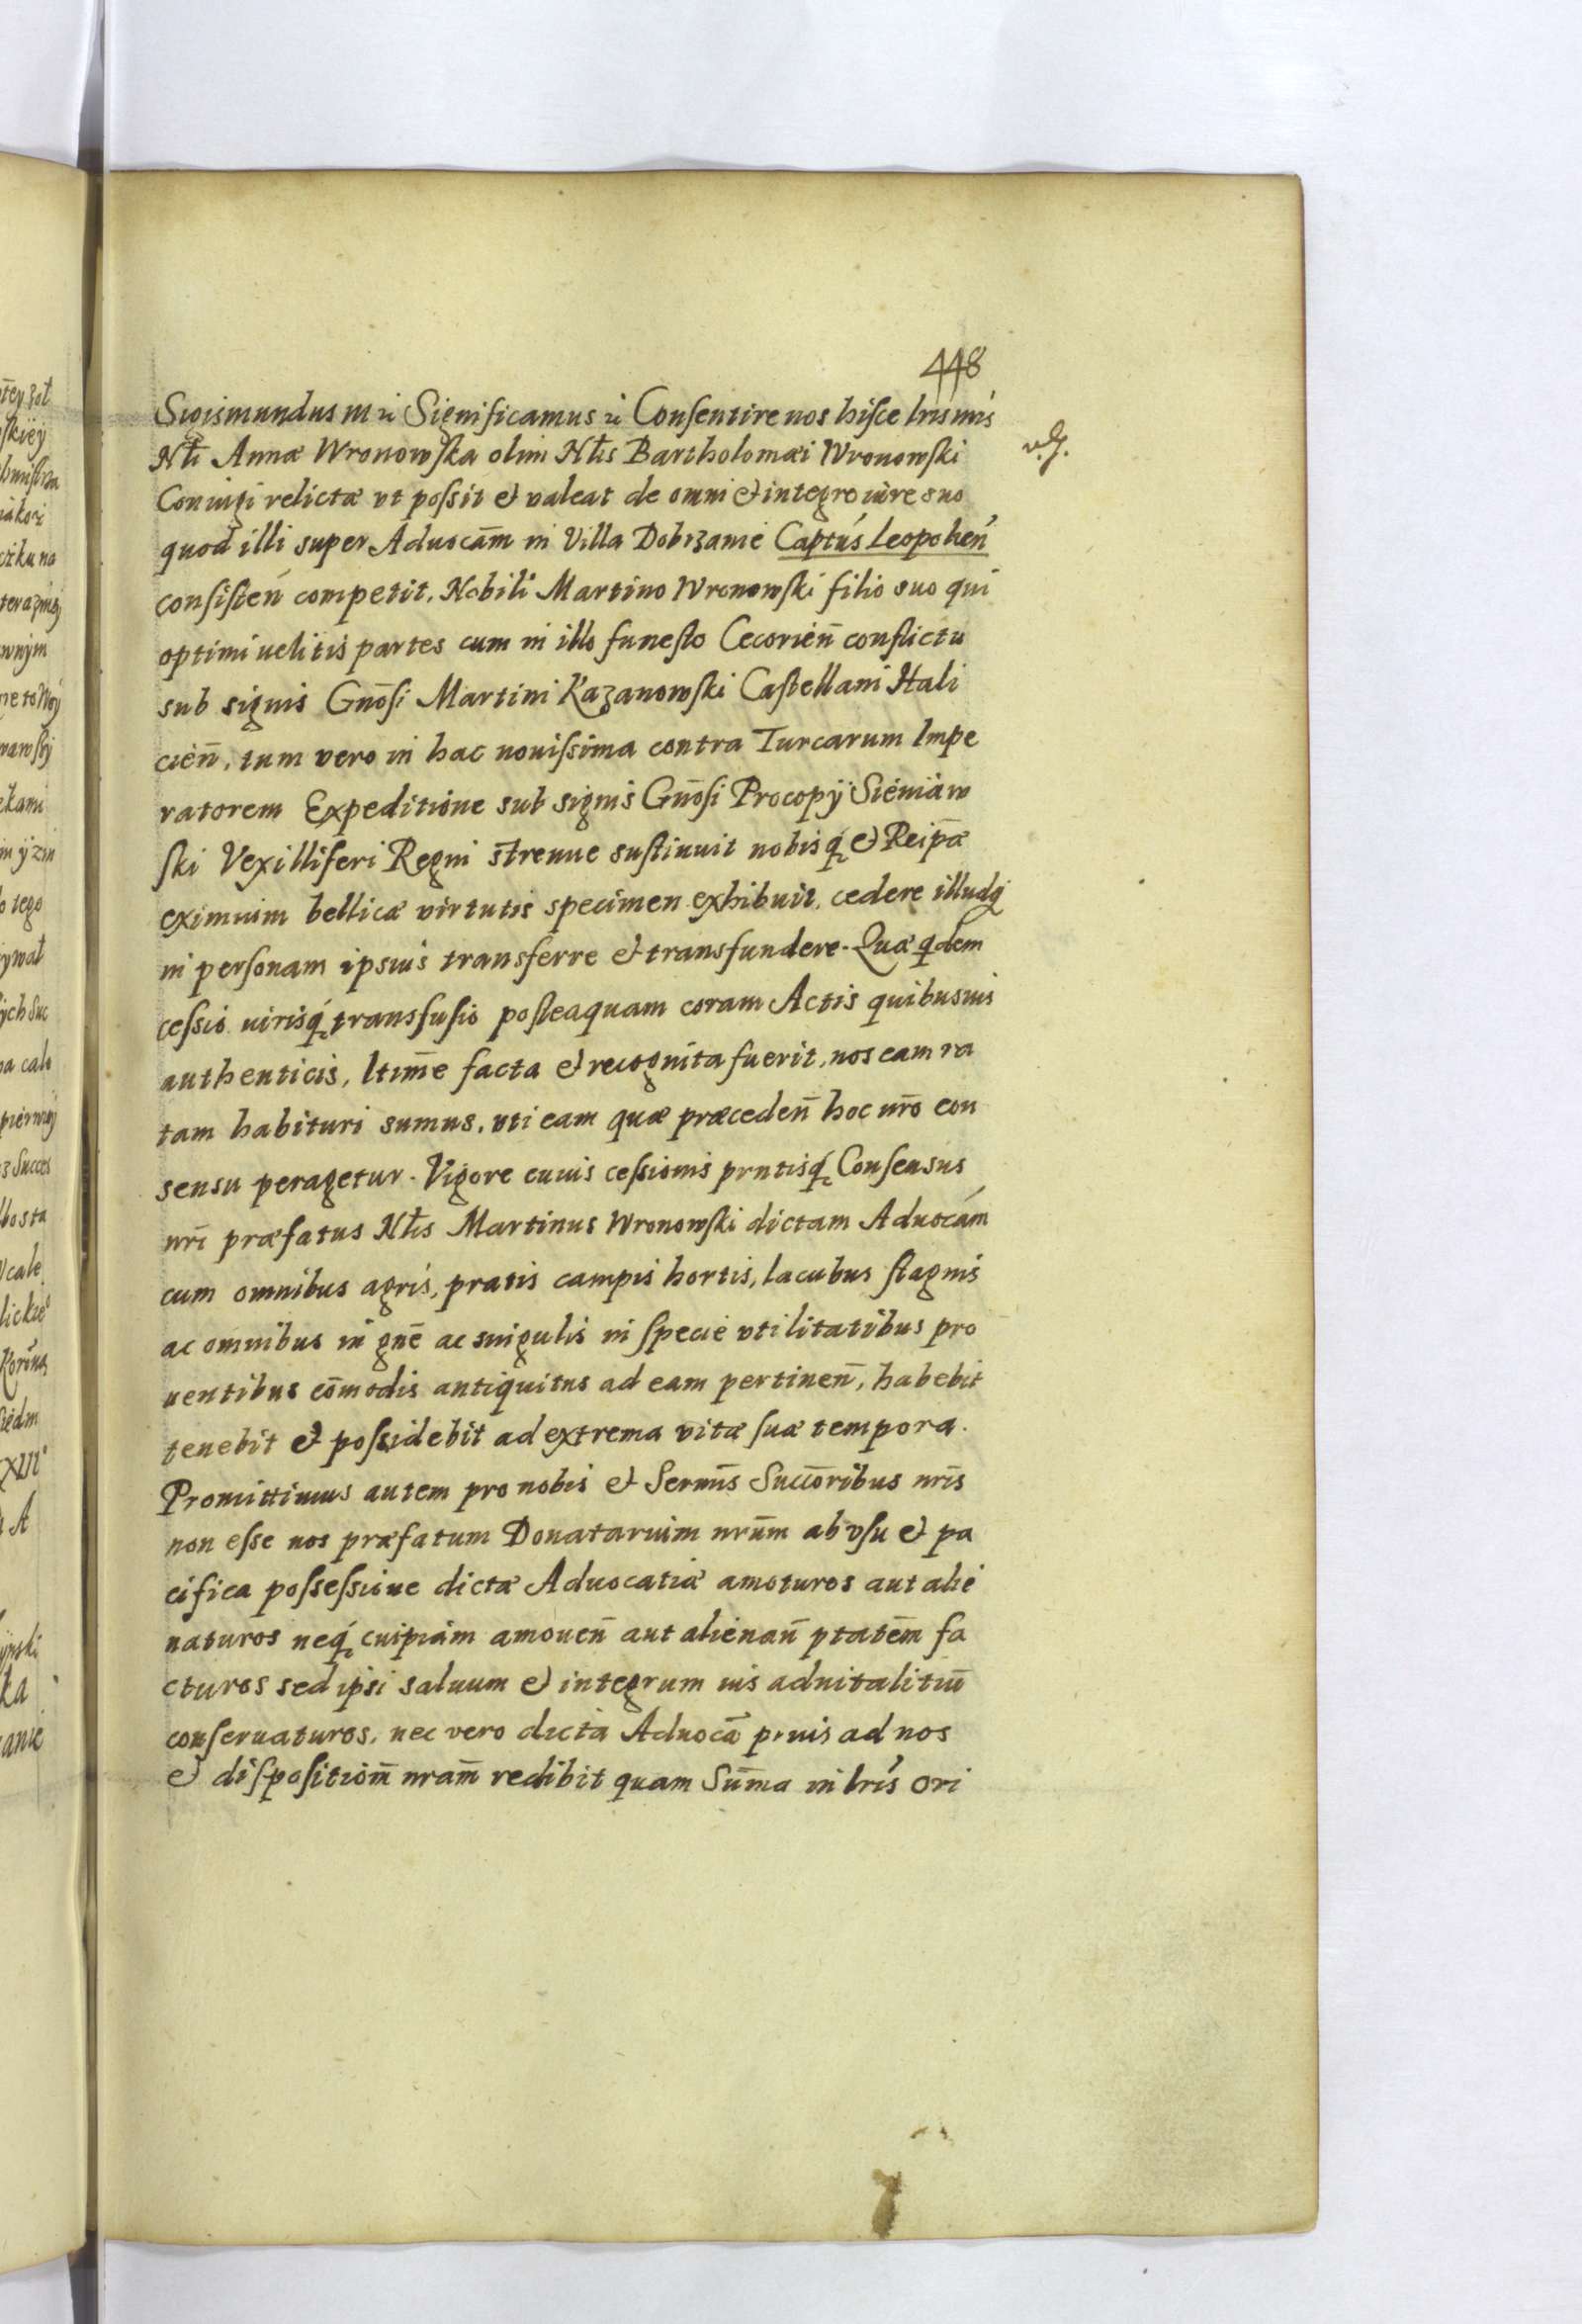 448
Sigismundus III etc Significamus etc Consentire nos hisce lris nris
Nbli Annæ Wronowska olim Nblis Bartholomæi Wronowski
Coniugi relictæ vt possit et valeat de omni et integro iure suo
quod illi super Aduocām in Villa Dobrzanie Captús Leopolien̄
consisten̄ competit, Nobili Martino Wronowski filio suo qui
optimi uelitis partes cum in illo funesto Cecorien̄ conflictu
sub signis Gnōsi Martini Kazanowski Castellani Hali
cien̄, tum vero in hac nouissima contra Turcarum Impe
ratorem Expeditione sub signis Gnōsi Procopÿ Sieniaw
ski Vexilliferi Regni strenue sustinuit nobisq́ et Reipæ
eximium bellicæ virtutis specimen exhibuit, cedere illudq́
in personam ipsius transferre et transfundere. Quæ qdem
cessio iurisq́ transfusio posteaquam coram Actis quibusuis
authenticis, ltim̄e facta et recognita fuerit, nos eam ra
tam habituri sumus, vti eam quæ præceden̄ hoc nr̄o con
sensu peragetur. Vigore cuius cessionis prntisq́ Consensus
nrī præfatus Nblis Martinus Wronowski dictam Aduocám
cum omnibus agris, pratis campis hortis, lacubus stagnis
ac omnibus in gn̄e ac singulis in specie vtilitatibus pro
uentibus cōmodis antiquitus ad eam pertinen̄, habebit
tenebit et possidebit ad extrema vitæ suæ tempora.
Promittimus autem pro nobis et Sermīs Succōribus nrīs
non esse nos præfatum Donatarium nrūm ab vsu et pa
cifica possessione dictæ Aduocatiæ amoturos aut alie
naturos neq́ cuipiam amouen̄ aut alienan̄ ptatēm fa
cturos sed ipsi saluum et integrum ius aduitalitiū
conseruaturos, nec vero dicta Aduocā prius ad nos
et dispositiom̄ nram̄ redibit quam Sum̄a in lrīs ori